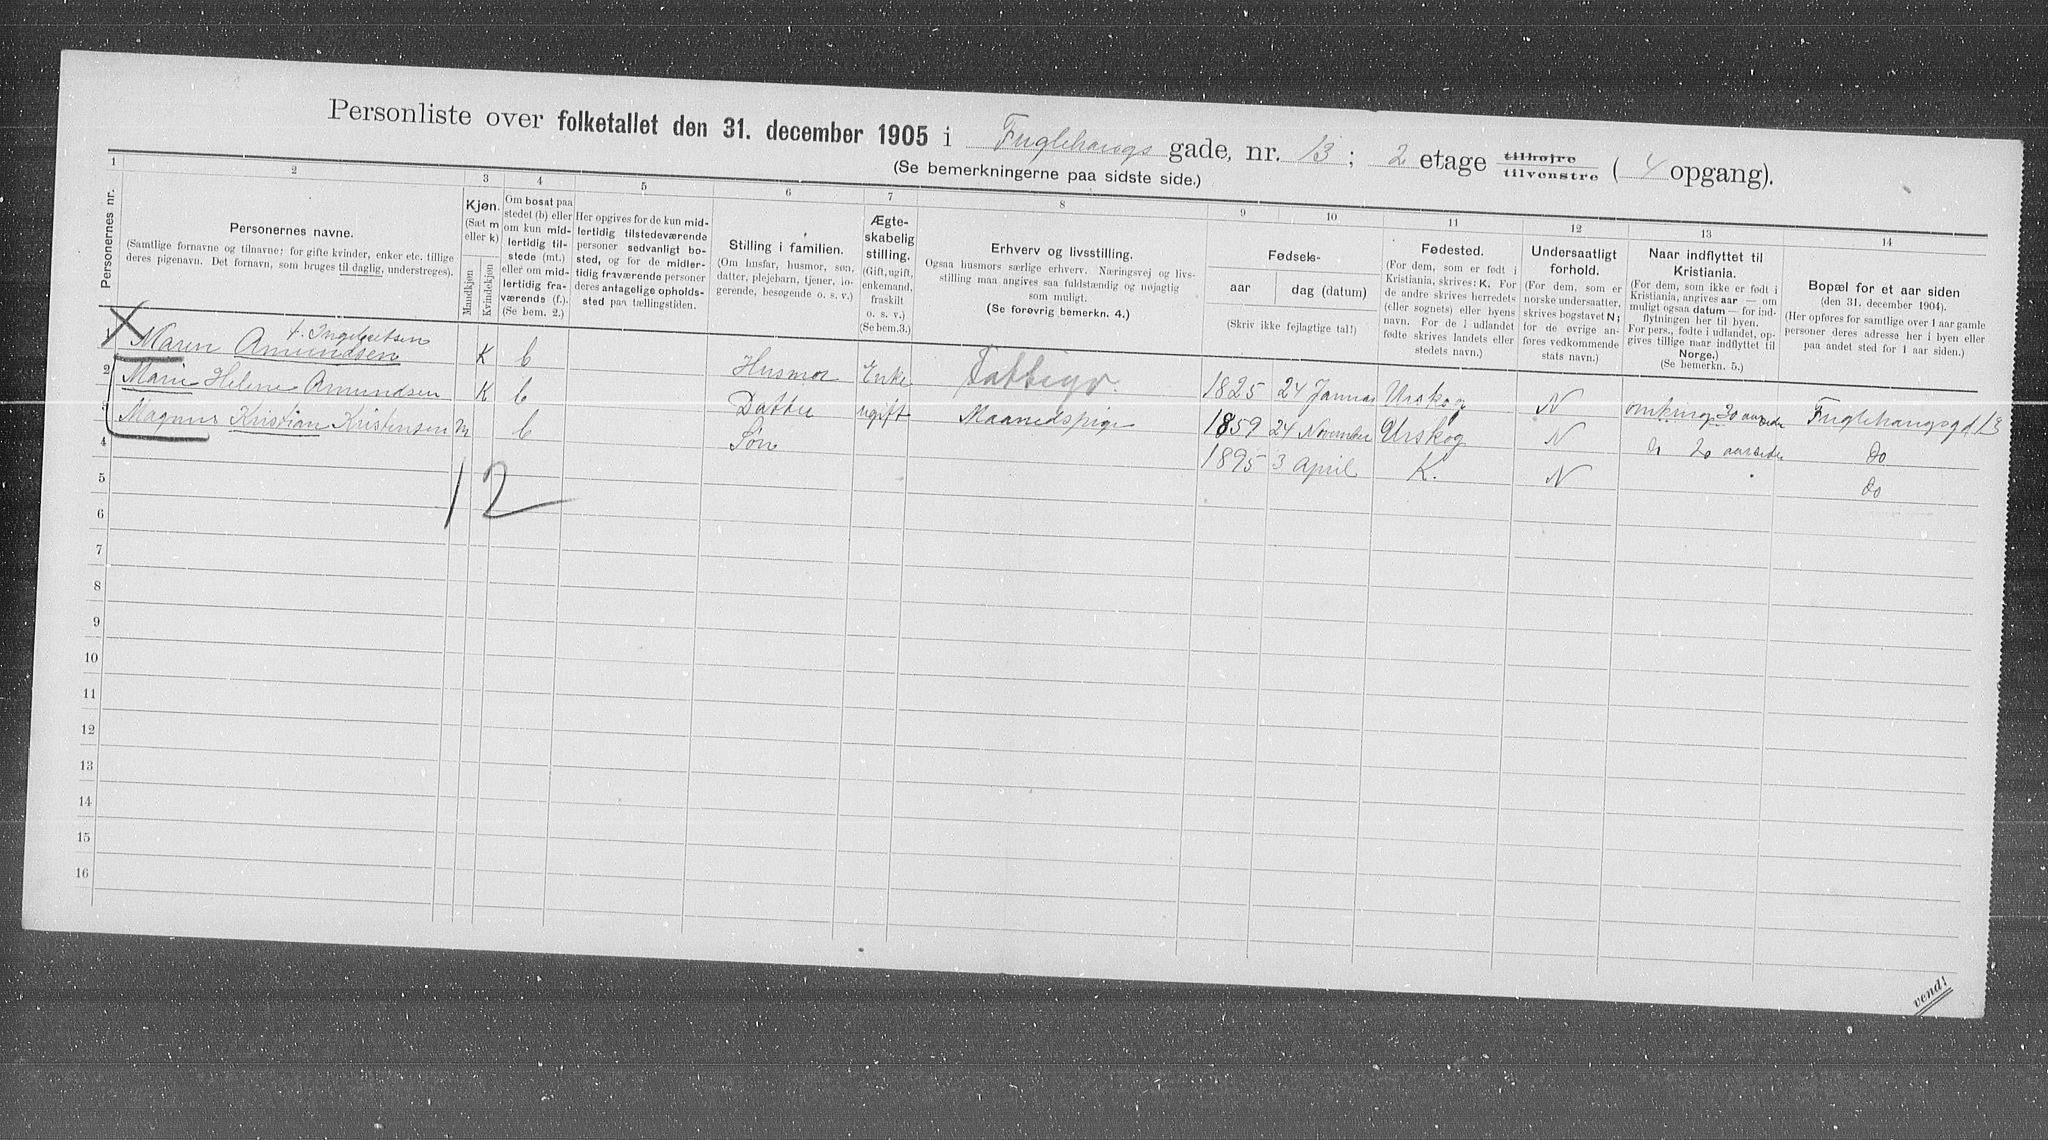 Personliste over folketallet den 31. december 1905 i Fuglehaugs gade, nr. 13; 2 etage tilhøjre tilvenstre (4 opgang).
(Se bemerkningerne paa sidste side.)
1 2 3 4 5 6 7 8 9 10 11 12 13 14
Personernes nr.
Personernes navne.
(Samtlige fornavne og tilnavne; for gifte kvinder, enker etc. tillige
deres pigenavn. Det fornavn, som bruges til daglig, understreges).
Kjøn.
(Sæt m
eller k)
Mandkjøn
Kvindekjøn
Om bosat paa
stedet (b) eller
om kun mid-
lertidig til-
stede (mt.)
eller om mid-
lertidig fra-
værende (f.).
(Se bem. 2.)
Her opgives for de kun mid-
lertidig tilstedeværende
personer sedvanligt bo-
sted, og for de midler-
tidig fraværende personer
deres antagelige opholds-
sted paa tællingstiden.
Stilling i familien.
(Om husfar, husmor, søn,
datter, plejebarn, tjener, lo-
gerende, besøgende o. s. v.)
Ægte-
skabelig
stilling.
(Gift, ugift,
enkemand,
fraskilt
o. s. v.)
(Se bem.3.)
Erhverv og livsstilling.
Ogsaa husmors særlige erhverv. Næringsvej og livs-
stilling maa angives saa fuldstændig og nøjagtig
som muligt.
(Se forøvrig bemerkn. 4.)
Fødsels-
aar
dag (datum)
(Skriv ikke fejlagtige tal!)
Fødested.
(For dem, som er født i
Kristiania, skrives: K. For
de andre skrives herredets
(eller sognets) eller byens
navn. For de i udlandet
fødte skrives landets eller
stedets navn.)
Undersaatligt
forhold.
(For dem, som er
norske undersaatter,
skrives bogstavet N;
for de øvrige an-
føres vedkommende
stats navn.)
Naar indflyttet til
Kristiania.
(For dem, som ikke er født i
Kristiania, angives aar — om
muligt ogsaa datum — for ind-
flytningen her til byen.
For pers., fødte i udlandet, op-
gives tillige maar indflyttet til
Norge.)
(Se bemerkn. 5.)
Bopæl for et aar siden
(den 31. december 1904).
(Her opføres for samtlige over 1 aar gamle
personer deres adresse her i byen eller
paa andet sted for 1 aar siden.)
f. Ingebretsen
1 Maren Amundsen K b Husmor Enke Fattigv. 1825 24 Januar Urskog N omkring 30 aar siden Fuglehaugsgd 13
2 Marie Helene Amundsen K b Datter ugift Maanedspige 1859 24 November Urskog N 20 aar siden do
3 Magnus Kristian Kristensen m b Søn 1895 3 April K. N do
4
12
5
6
7
8
9
10
11
12
13
14
15
16
vend!